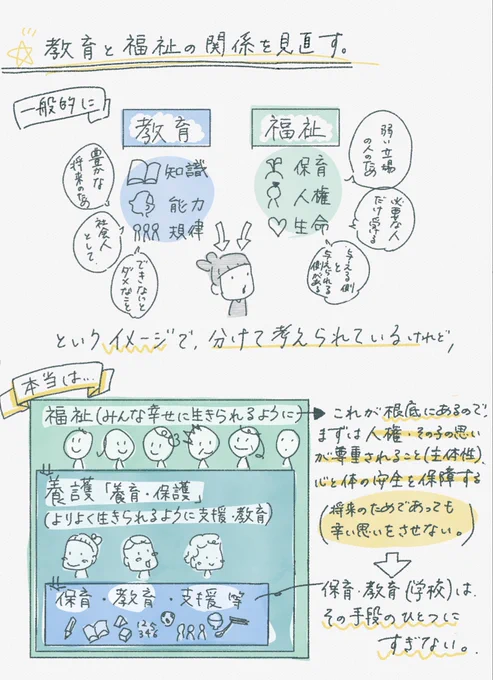 教育と福祉の関係を見直す。
一般的に
教育
知識
能力
規律
福祉
保育
人権
生命
豊かな
将来のため
社会人
として
できないと
ダメなこと
弱い立場
の人のため
必要な人
だけ受ける
与える側
と
与えられる
側がある
というイメージで、分けて考えられているけれど、
本当は…
福祉(みんな幸せに生きられるように)
養護「養育・保護」
(よりよく生きられるように支援・教育)
保育・教育・支援 等
123
346
これが根底にあるので、
まずは人権・その子の思い
が尊重されること(主体性)、
心と体の安全を保障する
(将来のためであっても
辛い思いをさせない。)
保育・教育(学校)は、
その手段のひとつに
すぎない。